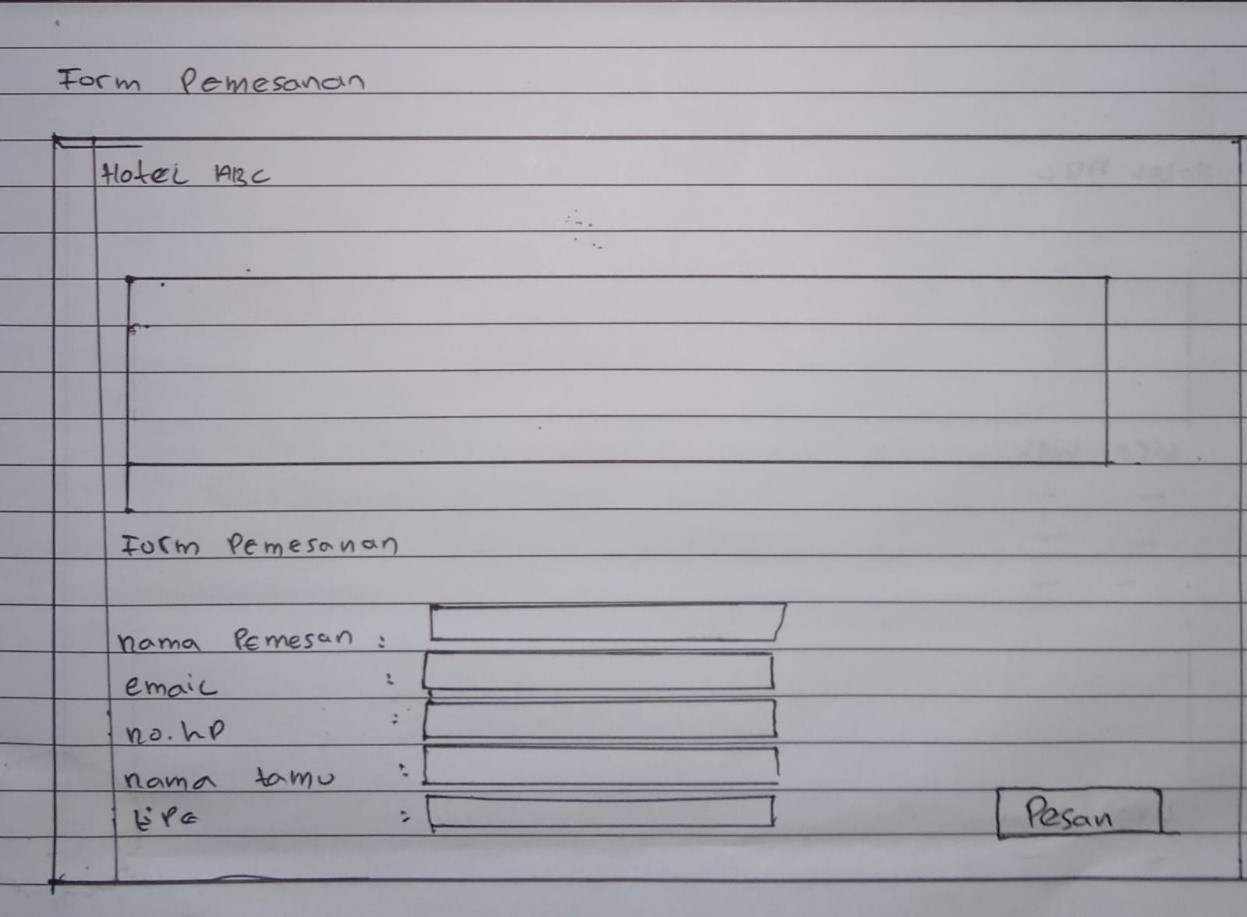 Form Pemesanan
Hotel ABC
Form Pemesanan
nama Pemesan :
email :
no. hp :
nama tamu :
tipe :
Pesan